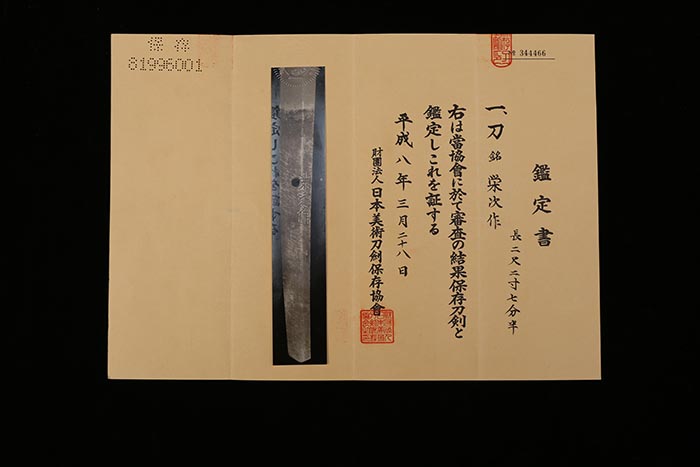 鑑定書
一、刀 銘 栄次作
長二尺二寸七分半
右は當協會に於て審査の結果保存刀剣と
鑑定しこれを証する
平成八年三月二十八日
財團法人日本美術刀劍保存協會
№ 344466
保存
81996001